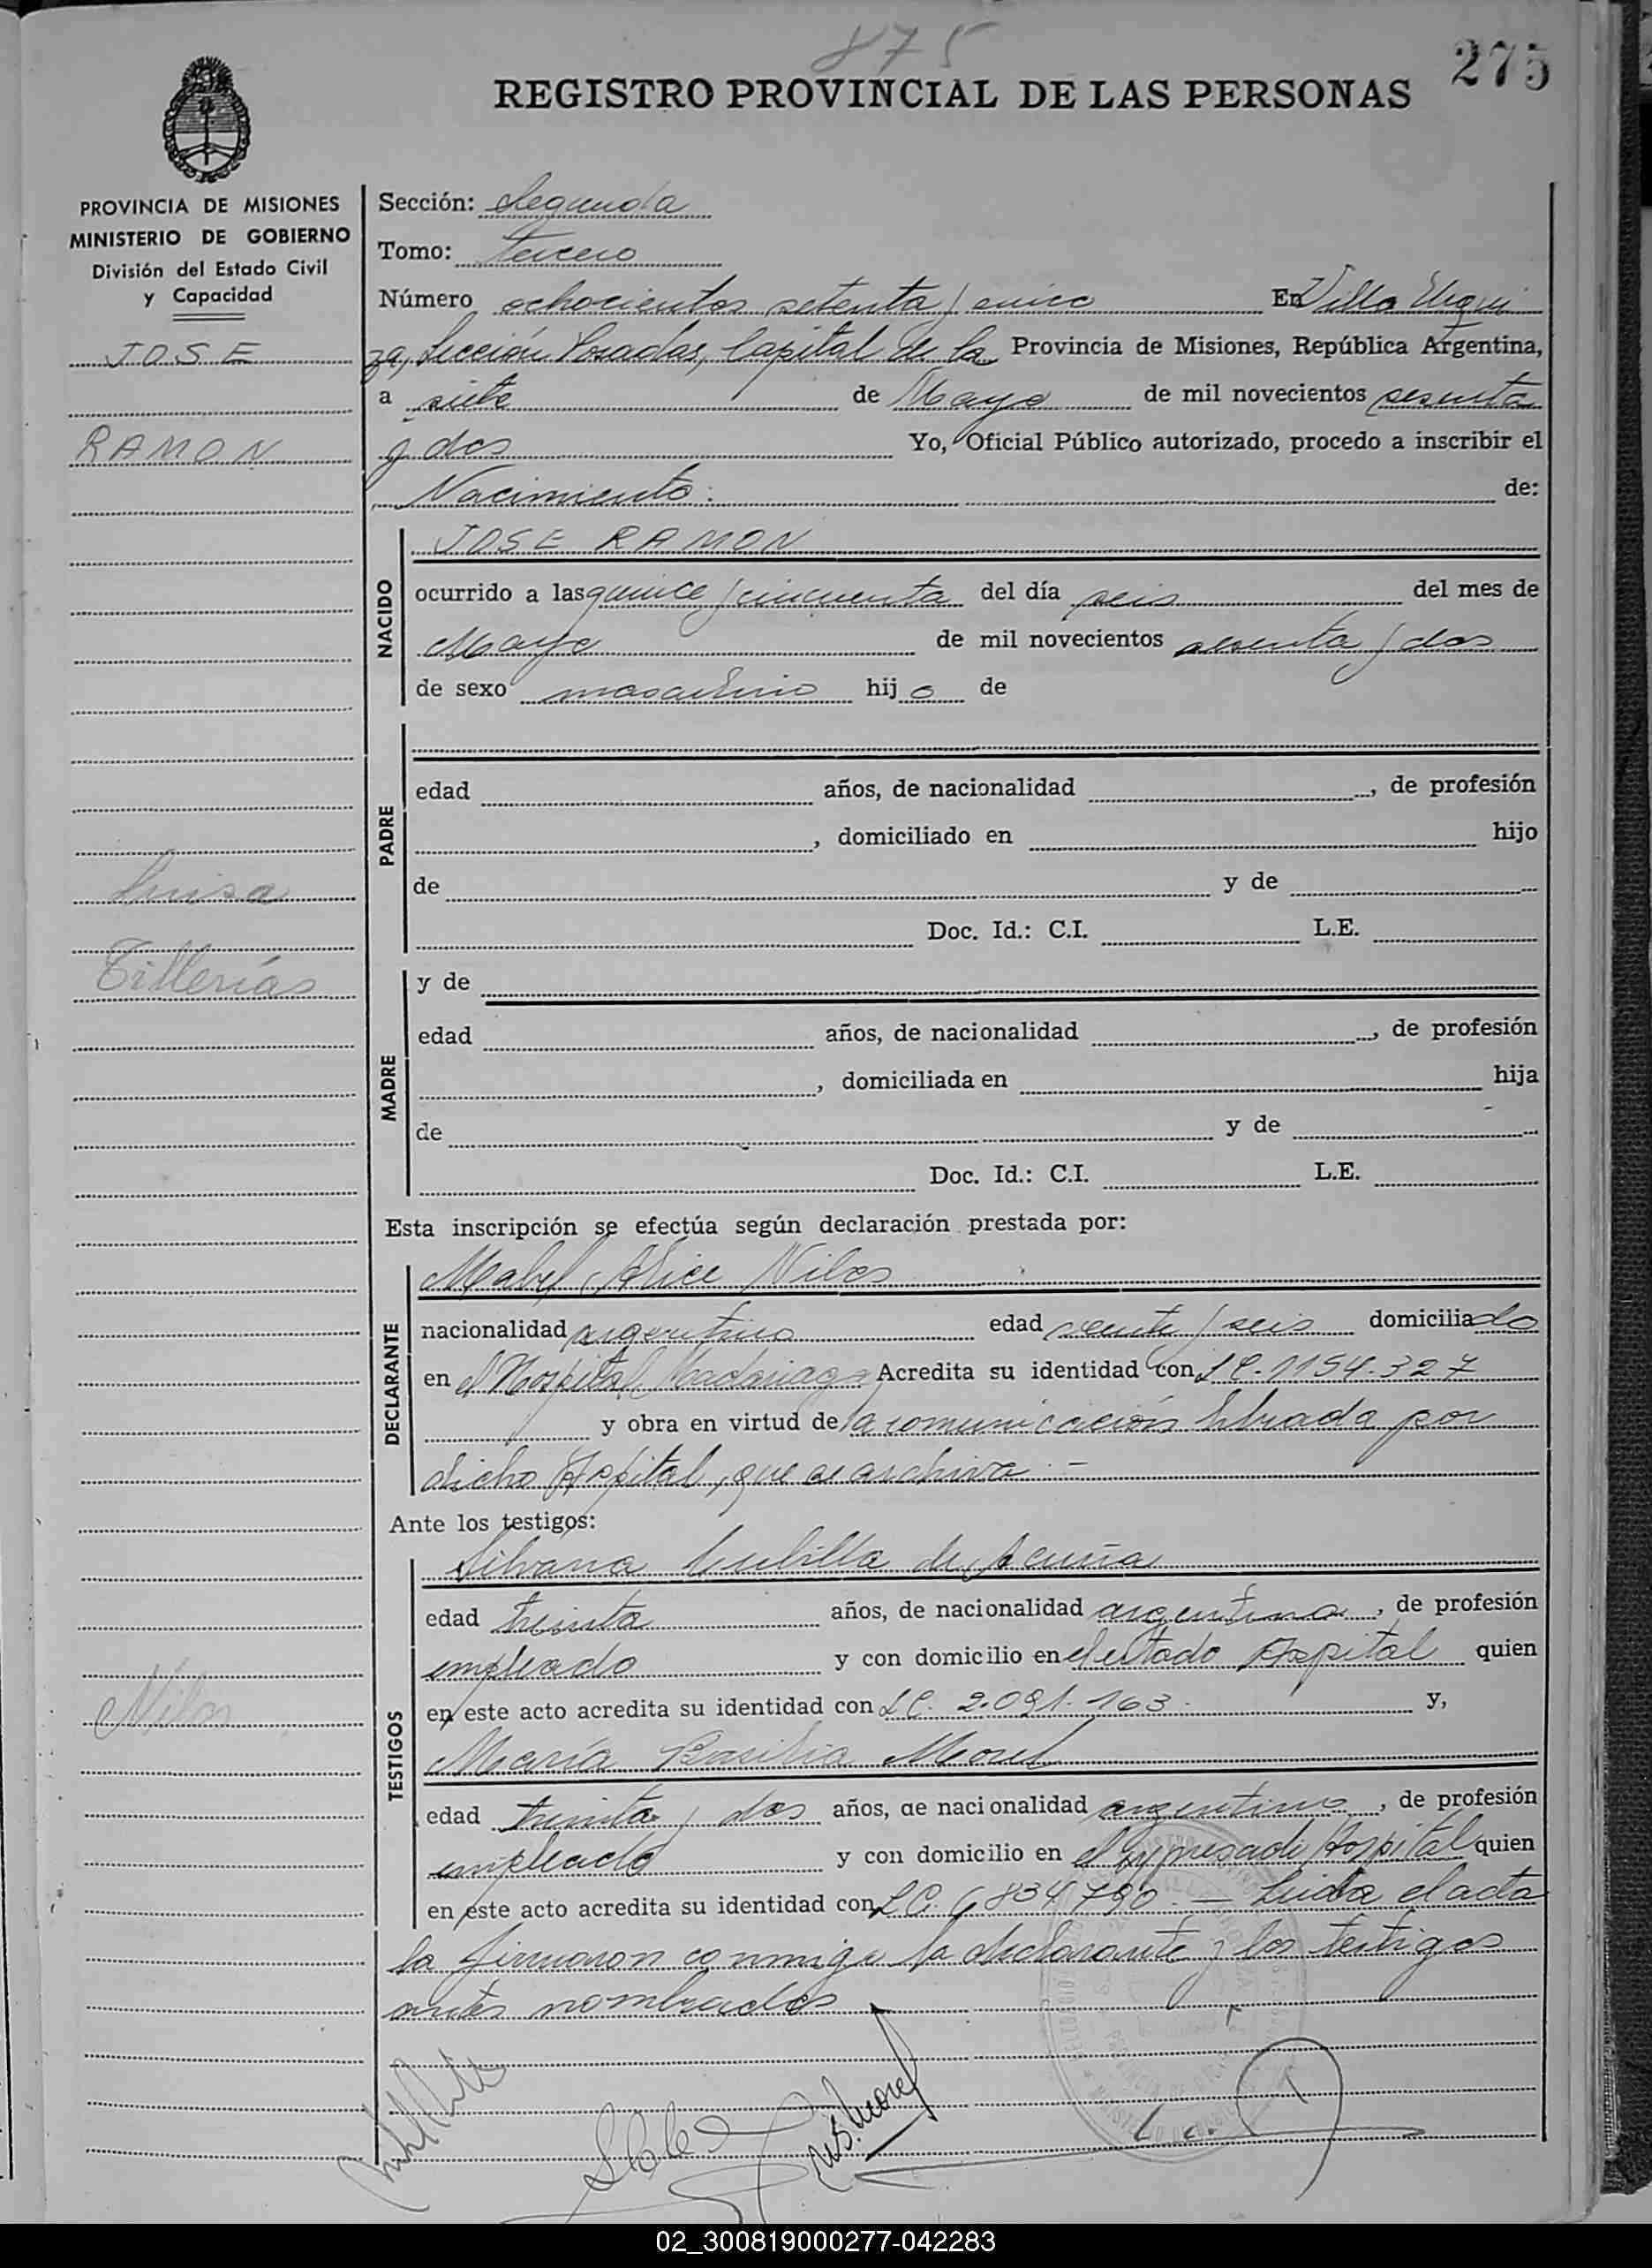 875
275
REGISTRO PROVINCIAL DE LAS PERSONAS
PROVINCIA DE MISIONES
MINISTERIO DE GOBIERNO
División del Estado Civil
y Capacidad
JOSE
RAMON
Luisa
Tillerías
Nilos
Sección: Segunda
Tomo: tercero
Número ochocientos setenta y cinco En Villa Urqui
za, Sección Posadas, Capital de la Provincia de Misiones, República Argentina,
a siete de Mayo de mil novecientos sesenta
y dos Yo, Oficial Público autorizado, procedo a inscribir el
Nacimiento: de:
NACIDO
JOSE RAMON
ocurrido a las quince y cincuenta del día seis del mes de
Mayo de mil novecientos sesenta y dos
de sexo masculino hijo de
PADRE
edad años, de nacionalidad , de profesión
, domiciliado en hijo
de y de
Doc. Id.: C.I. L.E.
MADRE
y de
edad años, de nacionalidad , de profesión
, domiciliada en hija
de y de
Doc. Id.: C.I. L.E.
Esta inscripción se efectúa según declaración prestada por:
DECLARANTE
Mabel Alice Nilos
nacionalidad argentino edad veinte y seis domiciliado
en el Hospital Madariaga Acredita su identidad con L C. 1154.327
y obra en virtud de la comunicación librada por
dicho Hospital, que se archiva. -
Ante los testigos:
TESTIGOS
Silvana Cubilla de Acuña
edad treinta años, de nacionalidad argentina, de profesión
empleado y con domicilio en el citado Hospital quien
en este acto acredita su identidad con L C. 2.091.163. y,
María Basilia Morel
edad treinta y dos años, de nacionalidad argentino, de profesión
empleado y con domicilio en el expresado Hospital quien
en este acto acredita su identidad con L C. 6834790. - Leida el acta
la firmaron conmigo la declarante y los testigos
antes nombrados
M.B. Morel
02_300819000277-042283